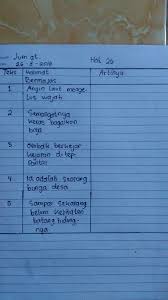 Jum at.
26-8-2016 Hal 26
Teks Kalimat Bermajas Artinya
1 Angin laut menge
lus wajah
2 Semangatnya
keras bagaikan
baja
3 Ombak berkejar
kejaran di tep
pantai
4 Ia adalah seorang
bunga desa
5 Sampai sekarang
belum kelihatan
batang hidung-
nya